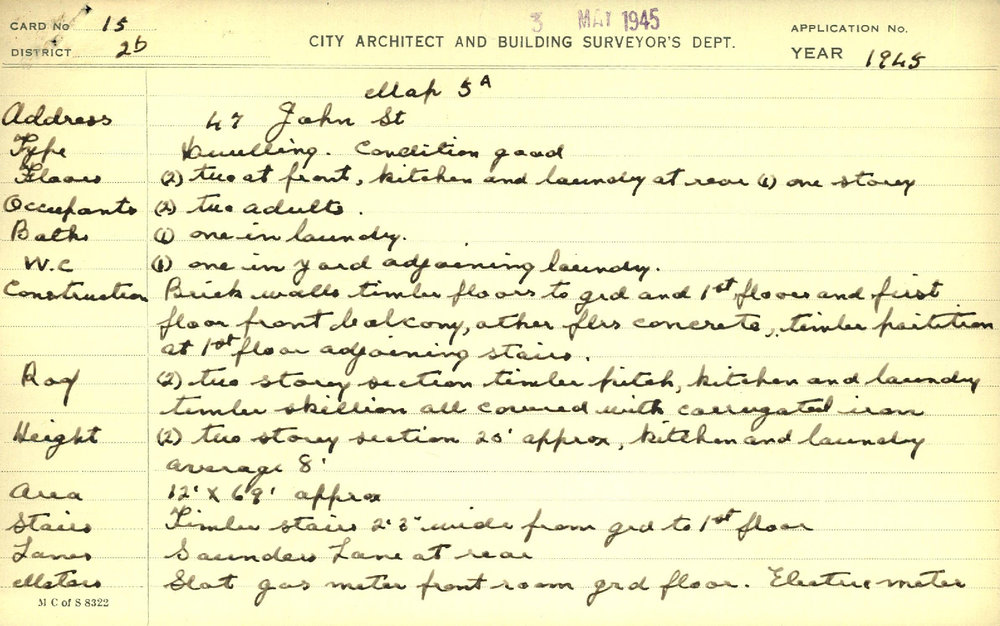 CARD No 15
3 MAY 1945
APPLICATION No.
DISTRICT 2b
CITY ARCHITECT AND BUILDING SURVEYOR'S DEPT.
YEAR 1945
Map 5A
Address 47 John St
Type Dwelling. Condition good
Floors (2) two at front, kitchen and laundry at rear (1) one storey
Occupants (2) two adults.
Baths (1) one in laundry.
W.C (1) one in yard adjoining laundry.
Construction Brick walls timber floors to grd and 1st floor and first
floor front balcony, other flrs concrete, timber partition
at 1st floor adjoining stairs.
Roof (2) two storey section timber pitch, kitchen and laundry
timber skillion all covered with corrugated iron
Height (2) two storey section 20' approx, kitchen and laundry
average 8'
Area 12' X 69' approx
Stairs Timber stairs 2'3" wide from grd to 1st floor
Lanes Saunders Lane at rear
Meters Slot gas meter front room grd floor. Electric meter
M C of S 8322